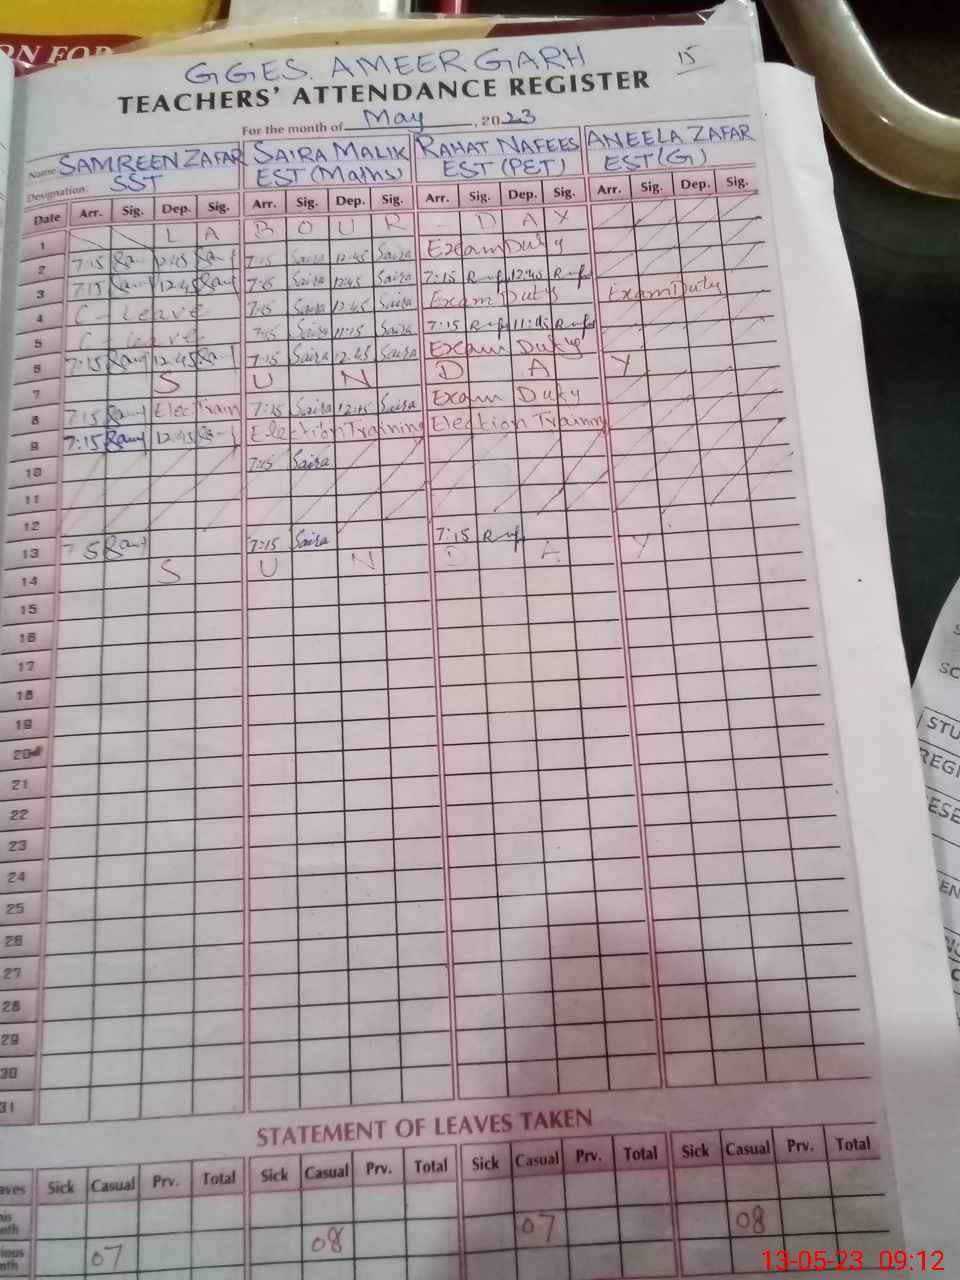 ON FOR
GGES. AMEER GARH 15
TEACHERS' ATTENDANCE REGISTER
For the month of May, 2023
Name SAMREEN ZAFAR SAIRA MALIK RAHAT NAFEES ANEELA ZAFAR
Designation: SST EST (Maths) EST (PET) EST (G)
Date Arr. Sig. Dep. Sig. Arr. Sig. Dep. Sig. Arr. Sig. Dep. Sig. Arr. Sig. Dep. Sig.
1 L A B O U R - D A Y
2 7:15 12:45 7:15 Saira 12:45 Saira Exam Duty
3 7:15 12:45 7:15 Saira 12:45 Saira 7:15 12:45
4 C-leave 7:15 Saira 12:45 Saira Exam Duty Exam Duty
5 C-leave 7:15 Saira 11:15 Saira 7:15 11:45
6 7:15 12:45 7:15 Saira 12:45 Saira Exam Duty
7 S U N D A Y
8 7:15 Elec: Train 7:15 Saira 12:45 Saira Exam Duty
9 7:15 12:45 Election Training Election Training
10 7:15 Saira
11
12
13 7:15 Saira 7:15
14 S U N D A Y
15
16
17
18
19
20
21
22
23
24
25
26
27
28
29
30
31
STATEMENT OF LEAVES TAKEN
Sick Casual Prv. Total Sick Casual Prv. Total Sick Casual Prv. Total Sick Casual Prv. Total
07 08 07 08
STU
REGI
13-05-23 09:12